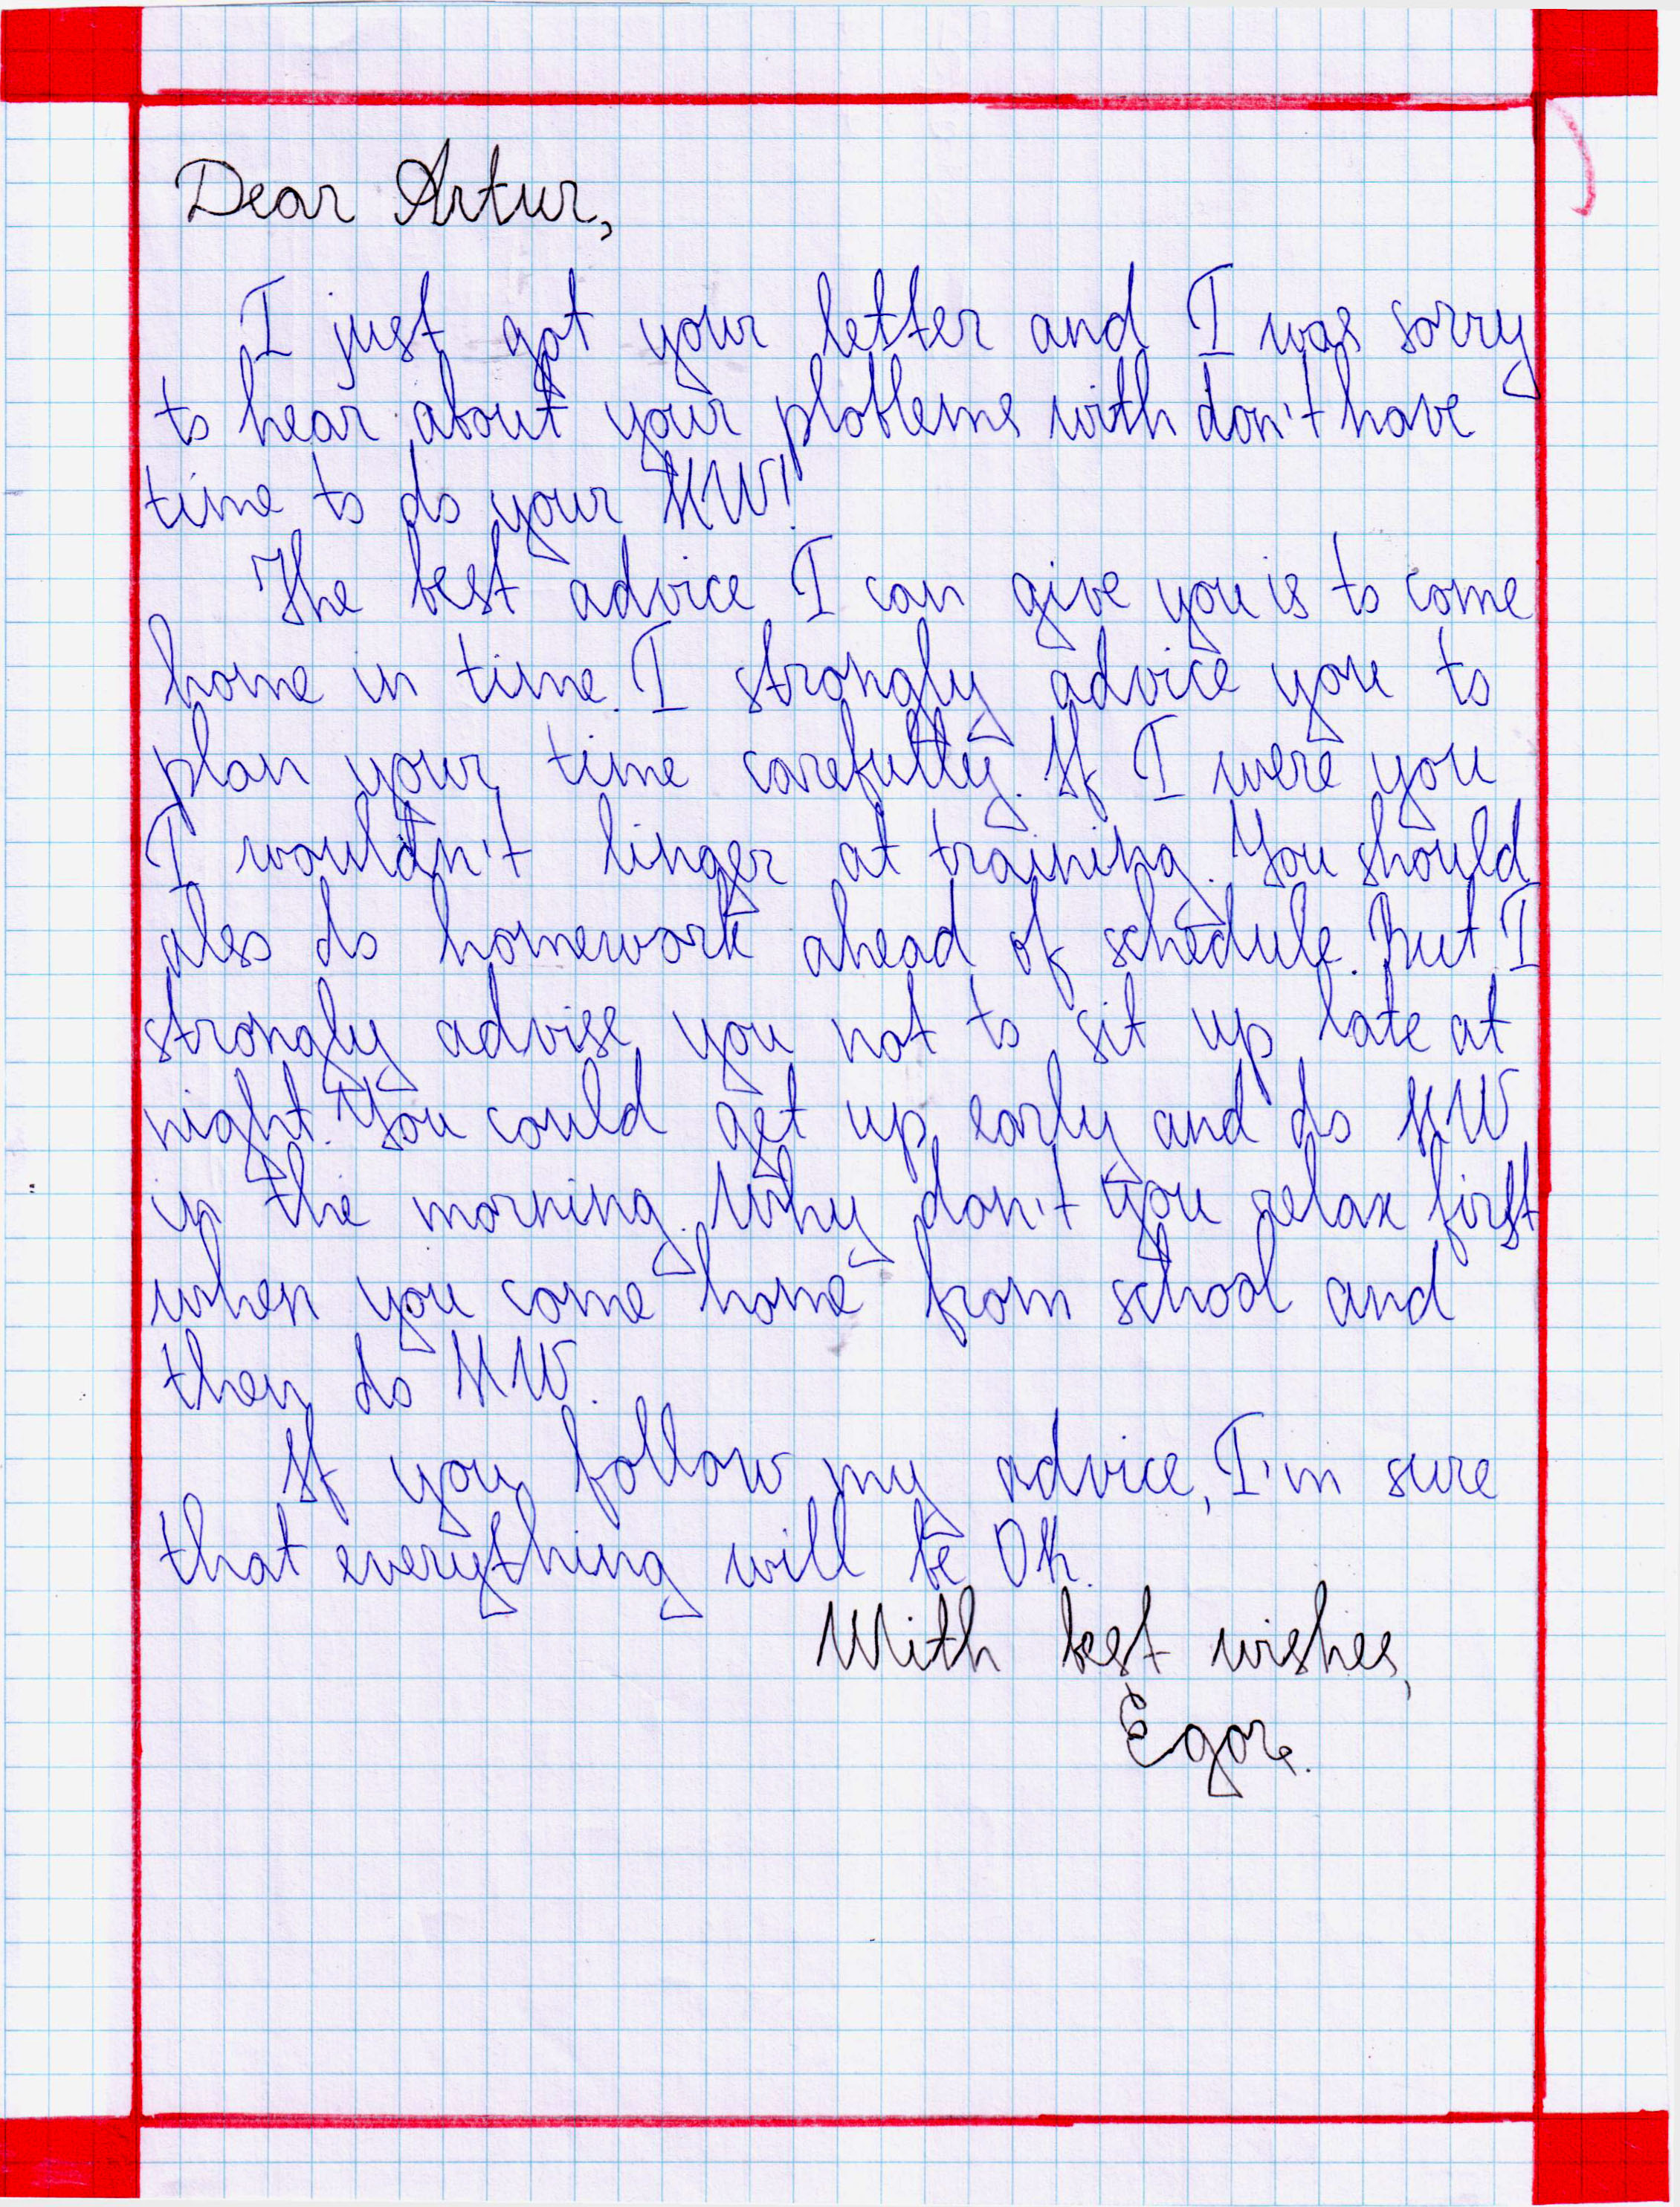 Dear Artur,
I just got your letter and I was sorry
to hear about your ploblems with don't have
time to do your HW!
The best advice I can give you is to come
home in time. I strongly advice you to
plan your time carefully. If I were you
I wouldn't linger at training. You should
also do homework ahead of schedule. But I
strongly advise you not to sit up late at
night. You could get up early and do HW
in the morning. Why don't you relax first
when you come home from school and
then do HW.
If you follow my advice, I'm sure
that everything will be OK.
With best wishes,
Egor.